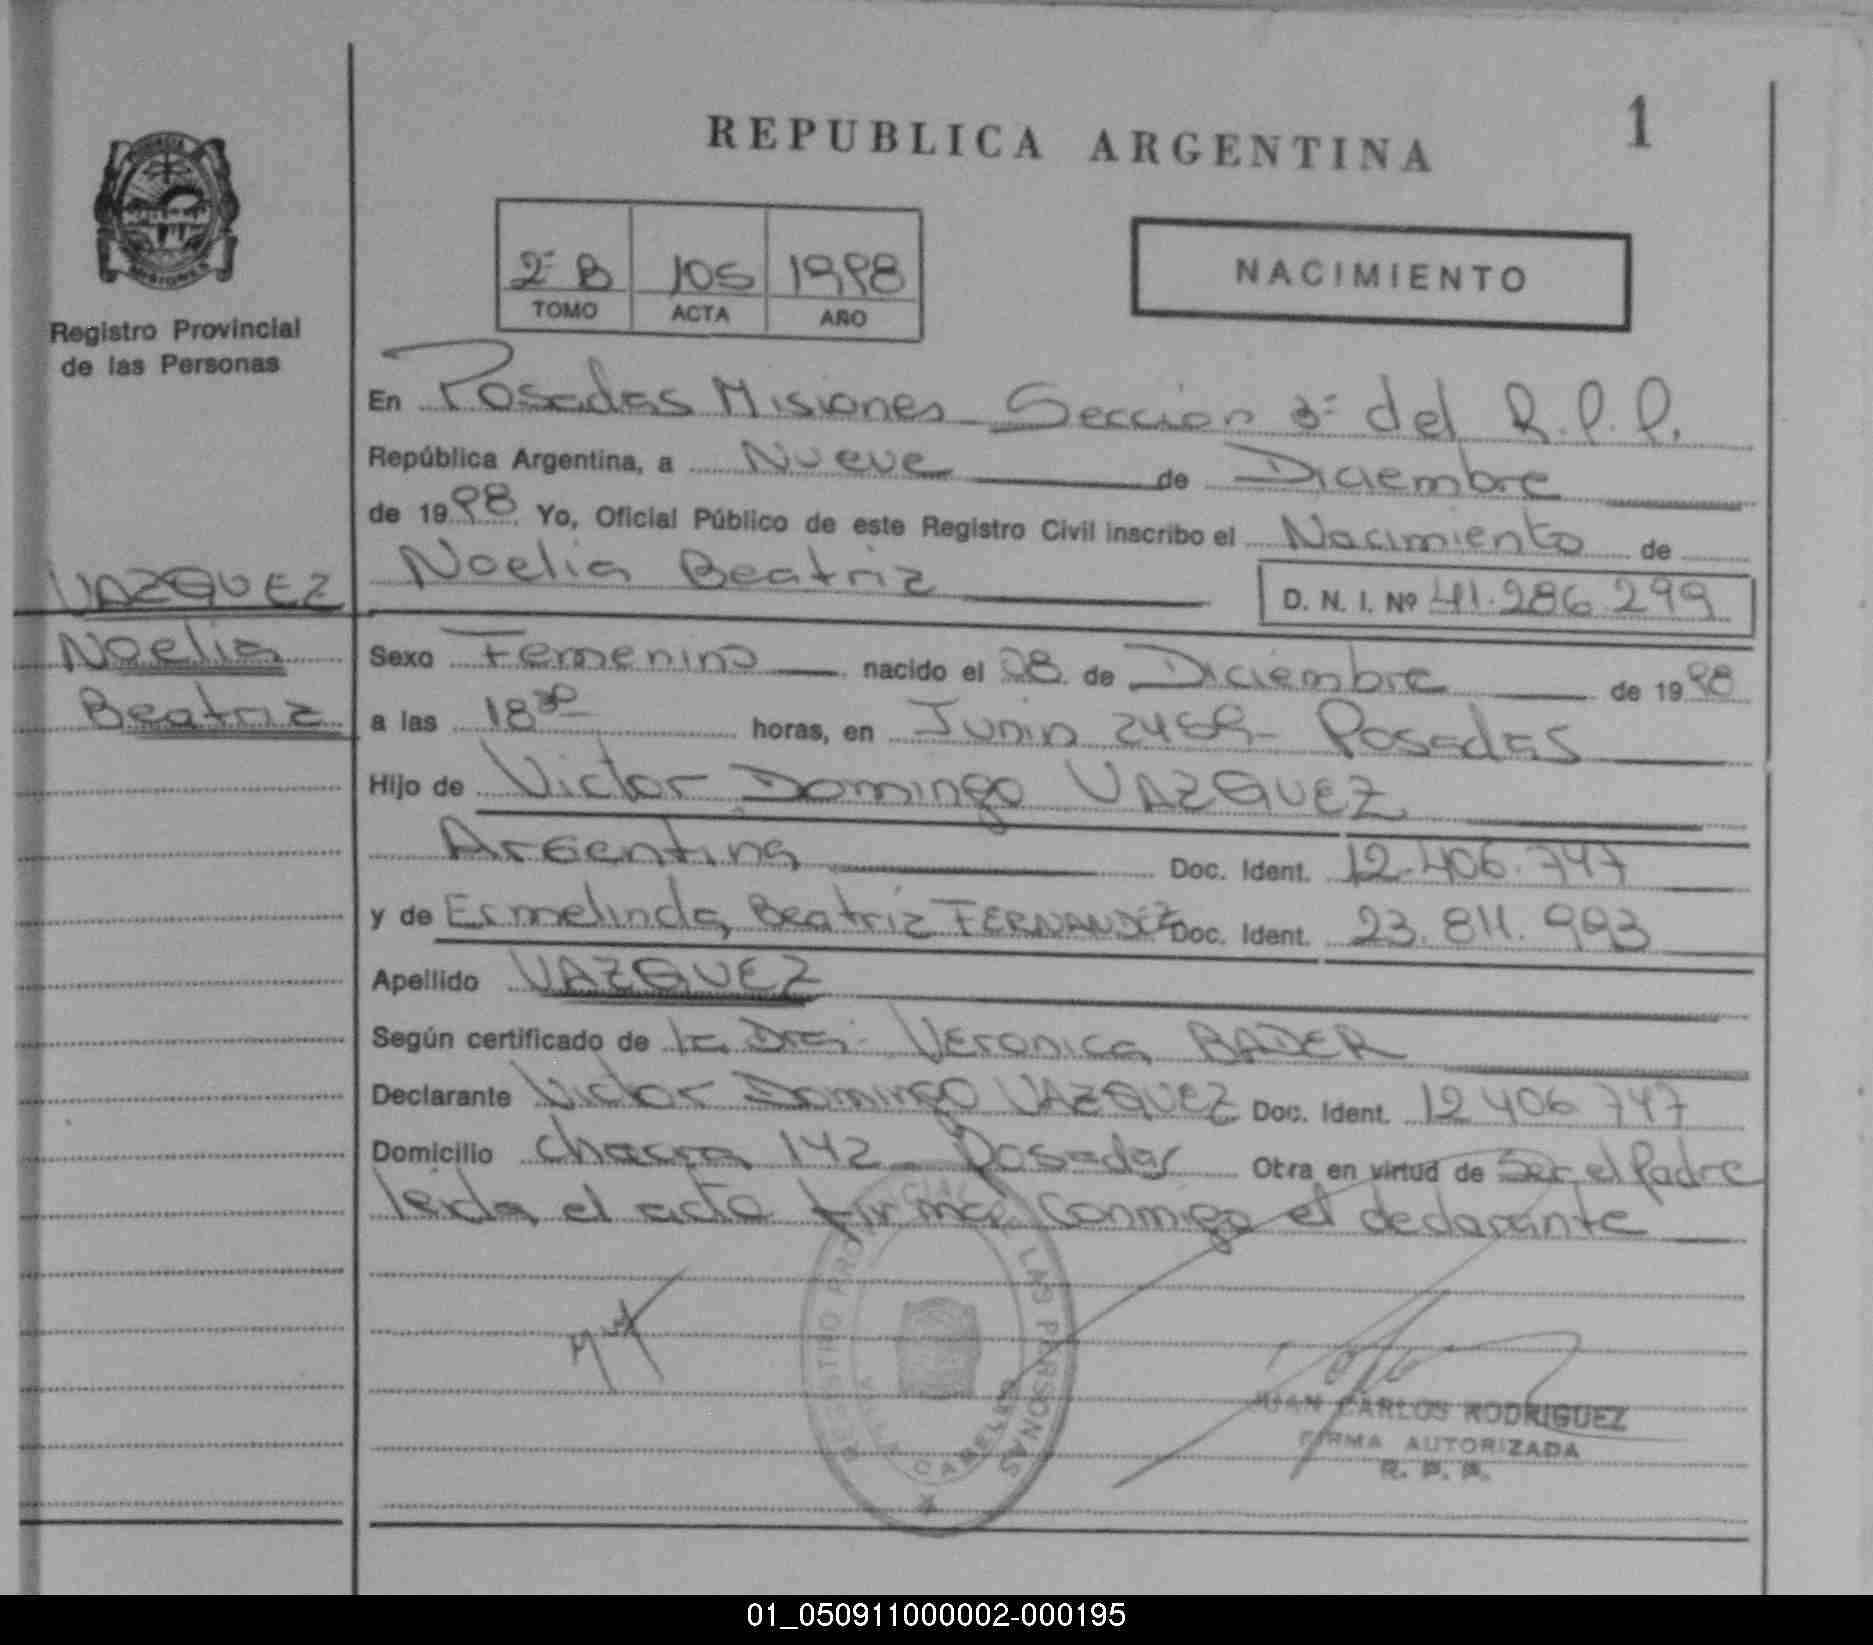 REPUBLICA ARGENTINA
1
Registro Provincial
de las Personas
2º B 105 1998
TOMO ACTA AÑO
NACIMIENTO
En Posadas Misiones Seccion 3º del R.P.P.
República Argentina, a Nueve de Diciembre
de 1998 Yo, Oficial Público de este Registro Civil inscribo el Nacimiento de
Noelia Beatriz D. N. I. Nº 41.286.299
VAZQUEZ
Noelia
Beatriz
Sexo Femenino nacido el 08 de Diciembre de 1998
a las 18 30 horas, en Junin Posadas
Hijo de Victor Domingo VAZQUEZ
Argentina Doc. Ident. 12.406.747
y de Ermelinda Beatriz FERNANDEZ Doc. Ident. 23.811.993
Apellido VAZQUEZ
Según certificado de la Dra. Veronica BADER
Declarante Victor Domingo VAZQUEZ Doc. Ident. 12 406 747
Domicilio chacra 142 - Posadas Otra en virtud de Ser el Padre
leida el acta firma conmigo el declarante
REGISTRO PROVINCIAL DE LAS PERSONAS
JUAN CARLOS RODRIGUEZ
FIRMA AUTORIZADA
R. P. P.
01_050911000002-000195